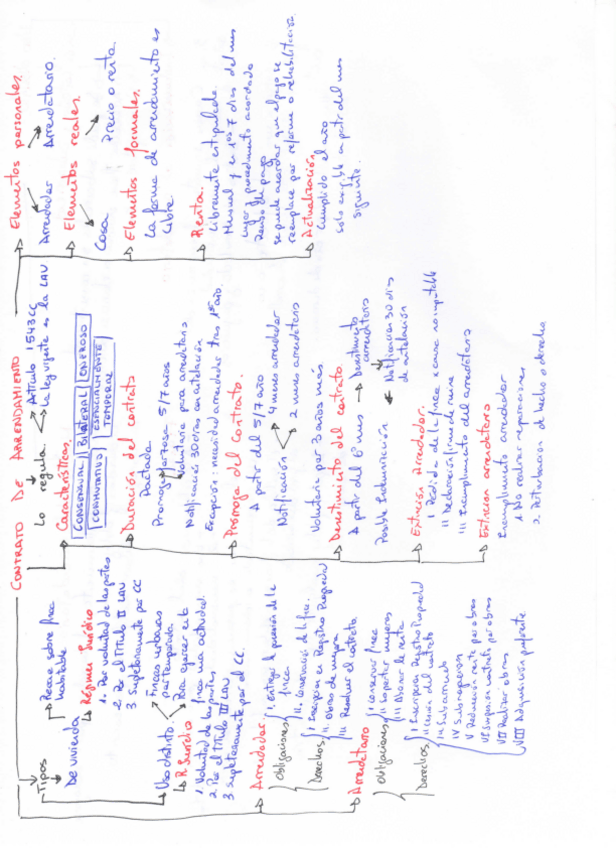 CONTRATO DE ARRENDAMIENTO
Tipos
De vivienda
Recae sobre finca
habitable
Régimen Jurídico
1. Por voluntad de las partes
2. Por el Título II LAU
3. Supletoriamente por CC
Uso distinto
Fincas urbanas
por temporada
Para ejercer en la
finca una actividad.
R. Jurídico
1. Voluntad de las partes
2. Por el Título III LAU
3. Supletoriamente por el CC.
Arrendador
Obligaciones
I. Entregar la posesión de la
finca
II. Conservación de la finca.
Derechos
I Inscripción en Registro Propiedad
II. Obras de mejora
III Resolver el contrato
Arrendatario
Obligaciones
I Conservar finca
II Soportar mejoras
III Abonar la renta
Derechos
I Inscripción Registro Propiedad
II Cesión del contrato
III Subarriendo
IV Subrogación
V Reducción renta por obras
VI Suspensión contrato por obras
VII Realizar obras
VIII Adquisición preferente
Lo regula
Artículo 1543 CC
La ley vigente es la LAU
Características
CONSENSUAL BILATERAL ONEROSO
CONMUTATIVO ESENCIALMENTE
TEMPORAL
Duración del contrato
Pactada
Prórroga forzosa 5/7 años
Voluntaria para arrendatario
Notificación 30 días con antelación
Excepción: necesidad arrendador tras 1er año.
Prórroga del Contrato.
A partir del 5/7 año
Notificación
4 meses arrendador
2 meses arrendatario
Voluntaria por 3 años más.
Desistimiento del contrato
A partir del 6º mes
Desistimiento
arrendatario
Posible Indemnización
Notificación 30 días
de antelación
Extinción Arrendador.
I Pérdida de la finca x causa no imputable
II Declaración firme de ruina
III Incumplimiento del arrendatario
Extinción arrendatario
Incumplimiento arrendador
1. No realizar reparaciones
2. Perturbación de hecho o derecho.
Elementos personales.
Arrendador
Arrendatario.
Elementos reales.
Cosa
Precio o renta.
Elementos formales.
La forma de arrendamiento es
libre.
Renta.
Libremente estipulada.
Mensual y en 1os 7 días del mes
Lugar y procedimiento acordado
Recibo del pago
se puede acordar que el pago se
reemplace por reforma o rehabilitación.
Actualización
Cumplido el año
solo exigible a partir del mes
siguiente.